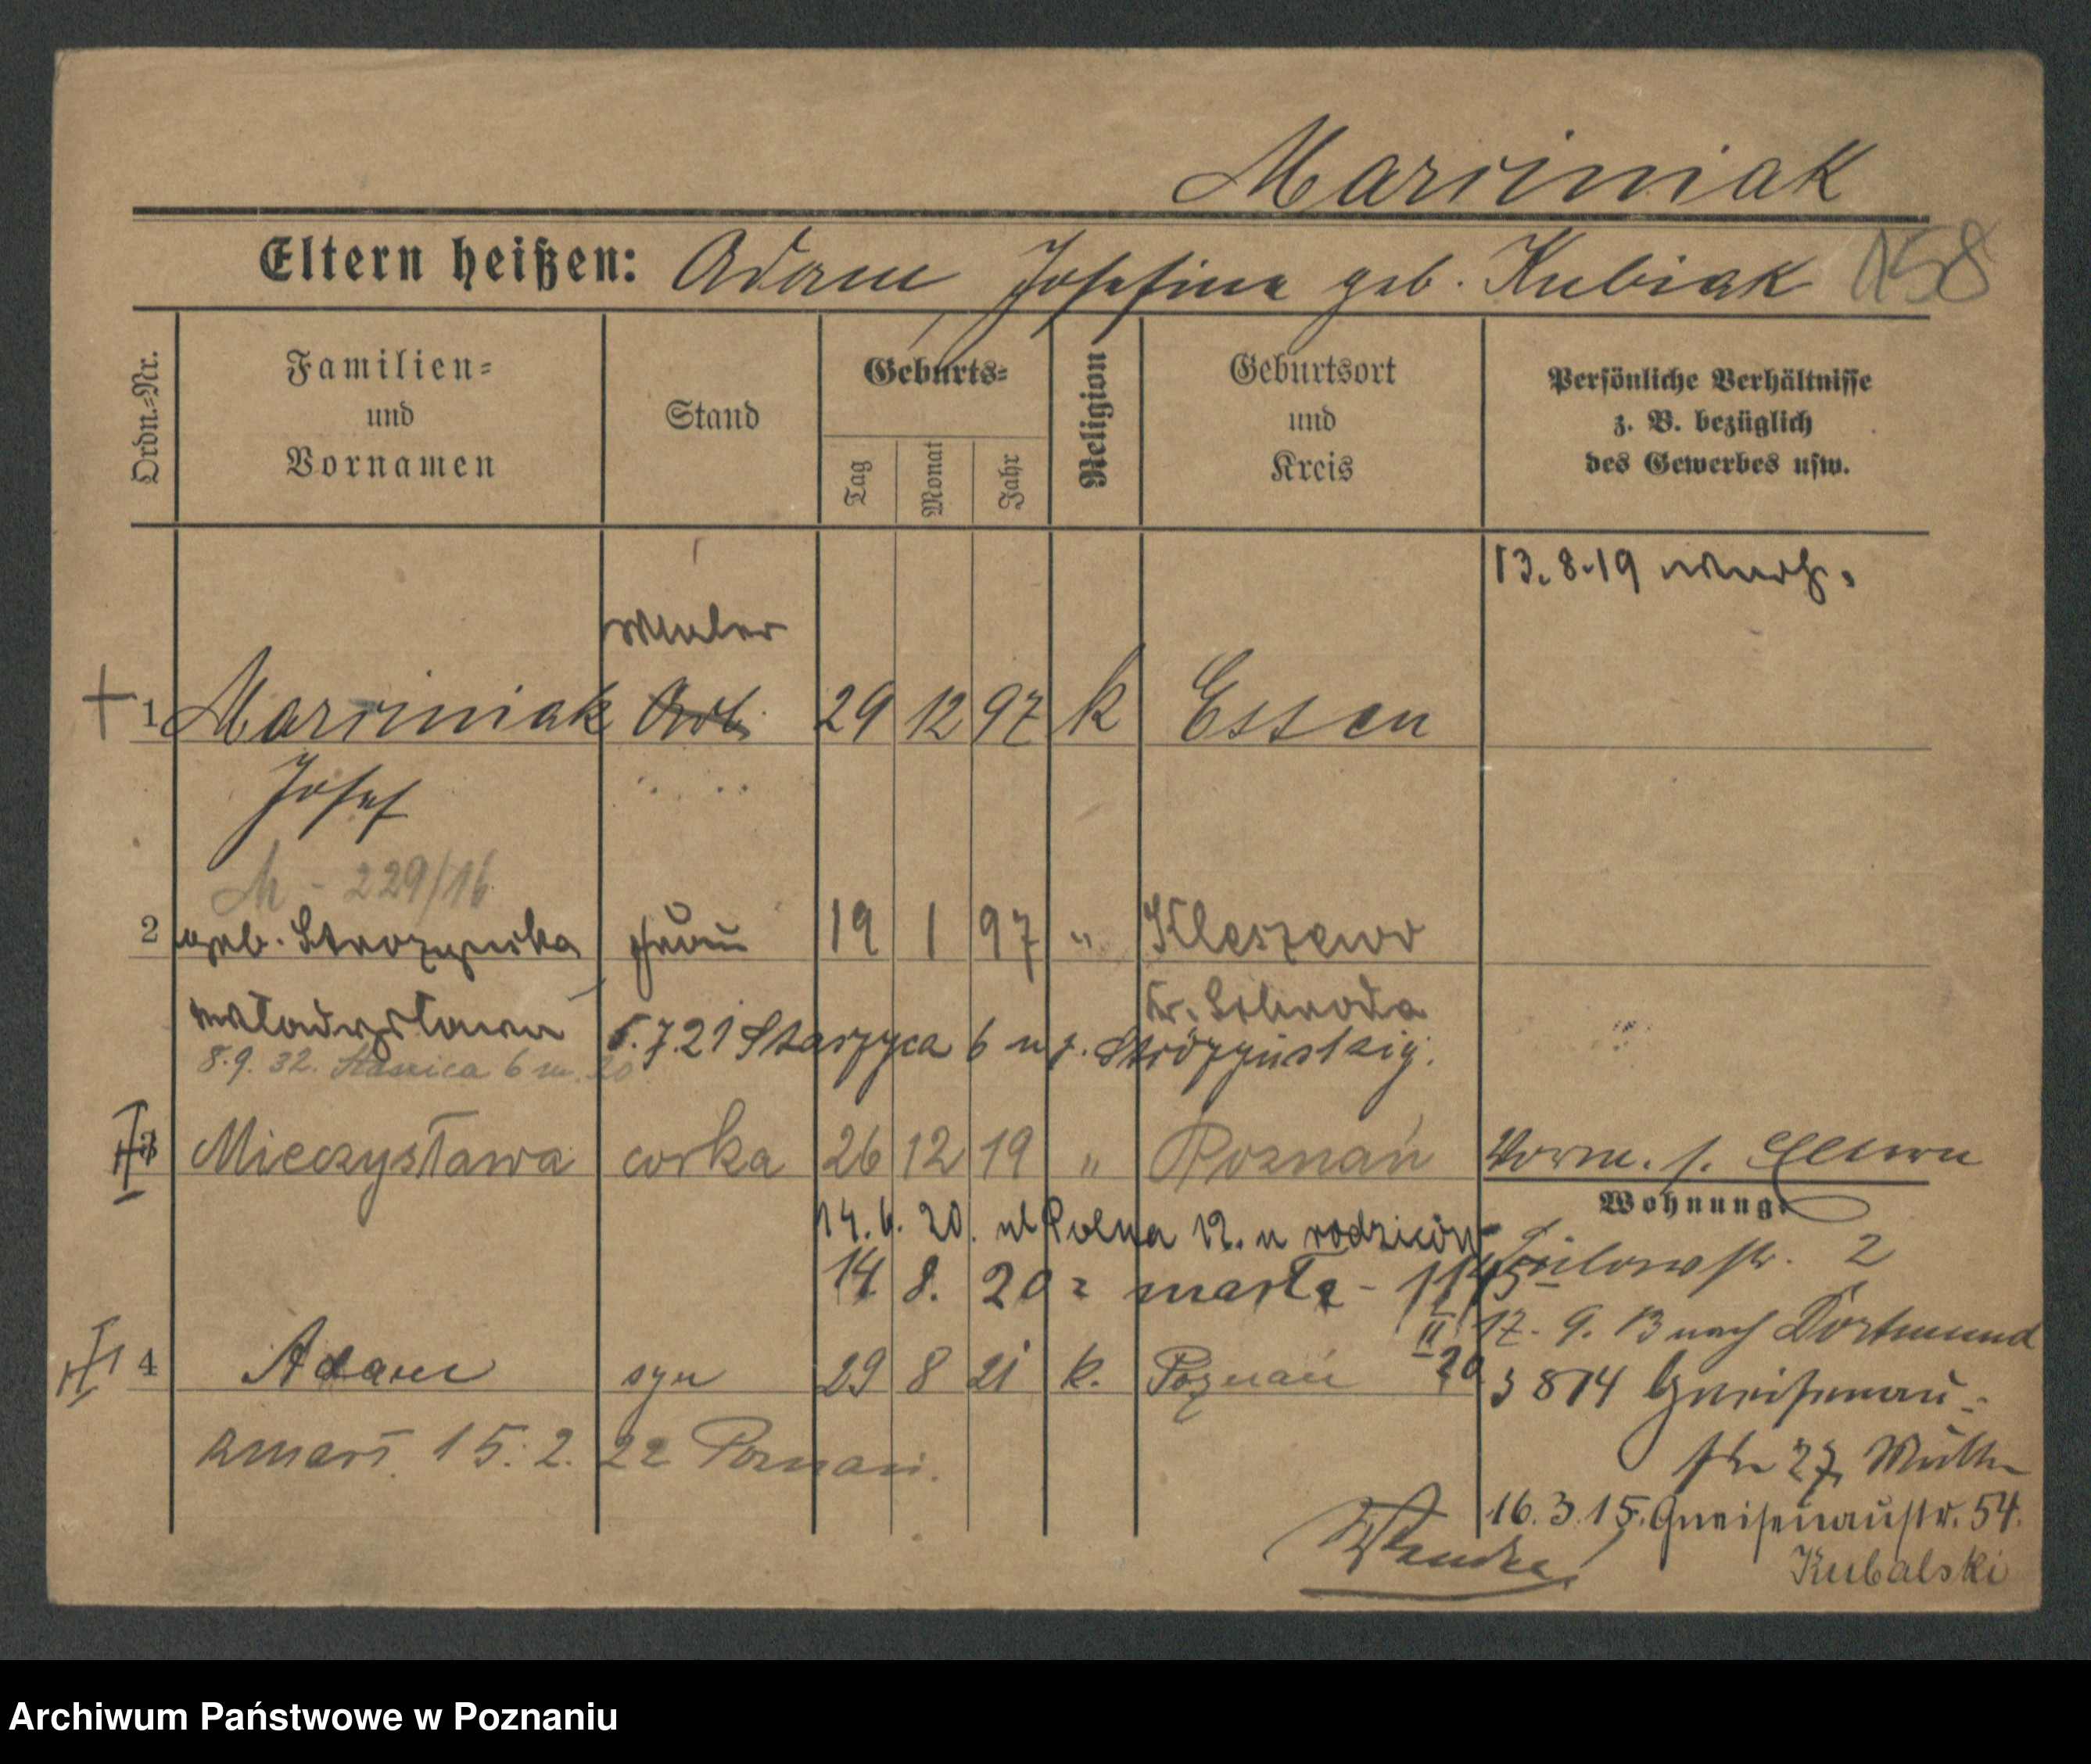 Marciniak
Eltern heißen: Adam Josefina geb. Kubiak 158
Ordn.-Nr.
Familien-
und
Vornamen
Stand
Geburts-
Tag
Monat
Jahr
Religion
Geburtsort
und
Kreis
Persönliche Verhältnisse
z. B. bezüglich
des Gewerbes usw.
13. 8. 19
Maler
1 Marciniak Arb. 29 12 97 k Essen
Josef
M - 229/16
2 geb. Strozynska Frau 19 1 97 " Kleszewo
Wladyslawa Kr. Schroda
5.7.21 Starzyca 6 u p. Stróżyńskiej.
8.9.32. 6 m. 20
3 Mieczysława corka 26 12 19 " Poznań Worm. s. Eltern
Wohnung.
14. 6. 20. ul Polna 12. u rodziców
Bülowstr. 2
14 8. 20 zmarła - 1145
II 20
17. 9. 13 nach Dortmund
4 Adam syn 29 8 21 k. Poznań
3874 Gneisenau-
str 27
zmarł 15. 2. 22 Poznań.
16. 3. 15. Gneisenaustr. 54.
Kubalski
Archiwum Państwowe w Poznaniu